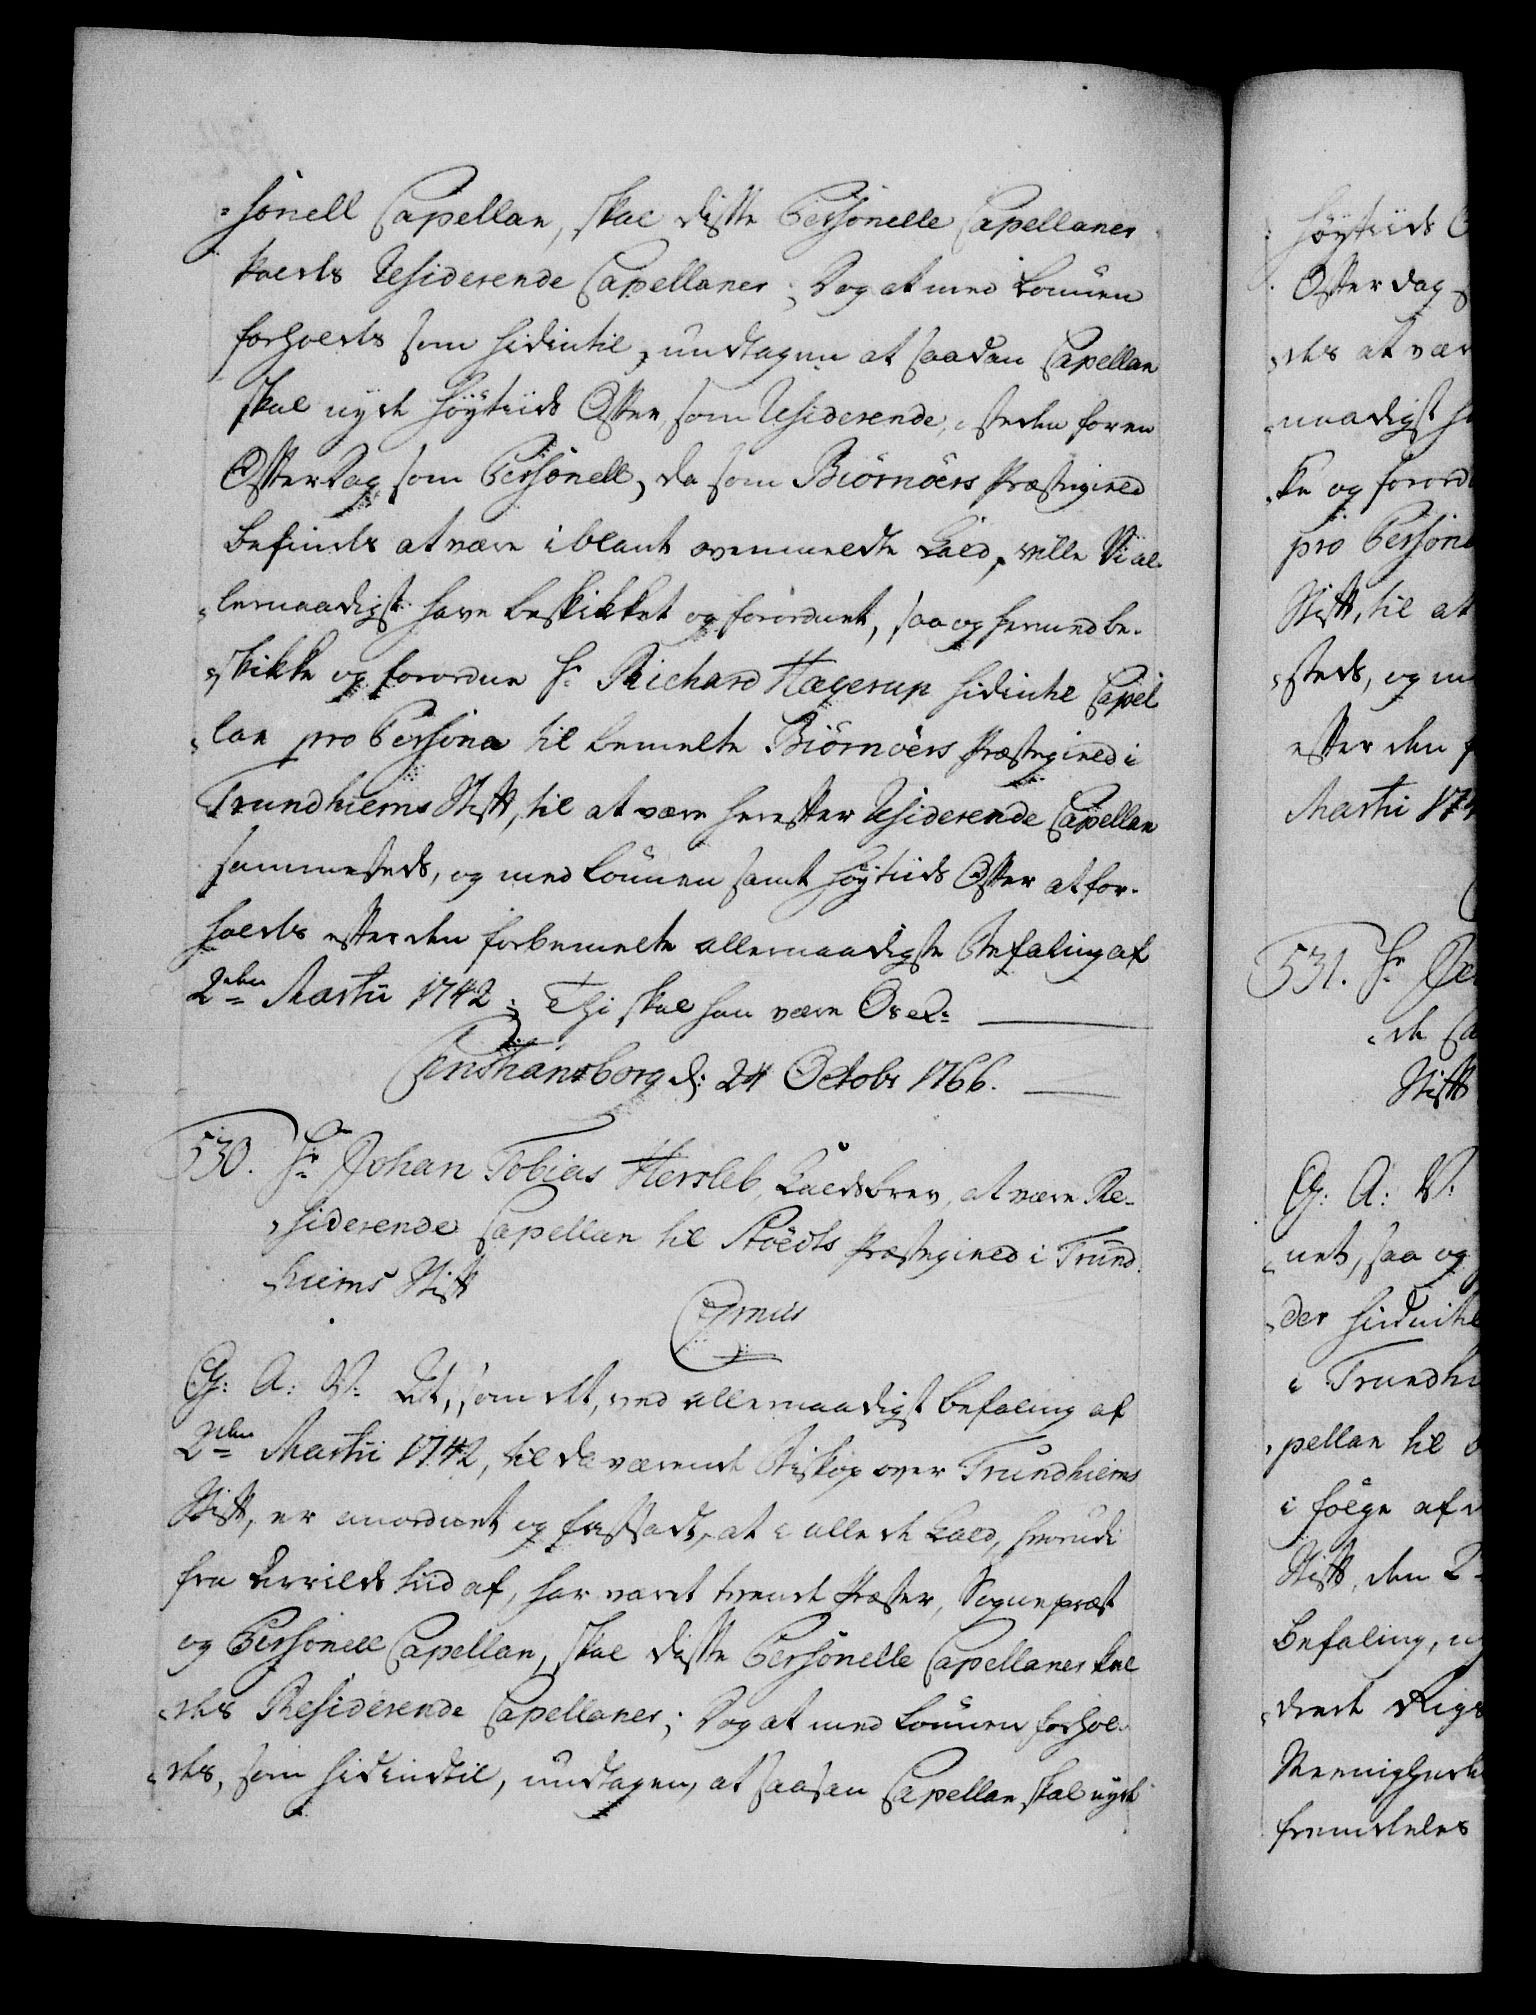 „sonell Capellan, skal disse Personelle Capellaner
kaldes Residerende Capellaner; Dog at med Lønnen
forholdes som hidintil, undtagen at saadan Capellan
skal nyde Höytiids Offer, som Residerende, isteden for en
Offerdag som Personell, da som Biörnöers Præstegield
befindes at være iblant ovenmeldte Kald, ville Vi al„
„lernaadigst have beskikket og forordnet, saa og hermed be„
„skikke og forordne Hr. Richard Hagerup hidintil Capel
„lan pro Persona til bemelte Biörnöers Præstegield i
Trundhiems Stift, til at være herefter Residerende Capellan
sammesteds, og med Lønnen samt Höytiids Offer at for„
holdes efter den forbemelte allernaadigste Befaling af
2den Martii 1742; Thi skal han være Os etc.
Christiansborg d: 24 Octobr 1766.
530. Hr Johan Tobias Hersleb, Kaldsbrev, at være Re„
„siderende Capellan til Stöeds Præstegield i Trund„
„hiems Stift
Gratis
G: A: V: At, som det, ved allernaadigst befaling af
2den Martii 1742, til daværende Biskop over Trundhiems
Stift, er anordnet og fastsadt, at i alle de Kald, hvorudi
fra Arrilds tiid af, har været tvende Præster, Sognepræst
og Personell Capellan, skal disse Personelle Capellaner kal
„des Residerende Capellaner; Dog at med Lønnen forhol„
„des, som hidindtil, undtagen, at saadan Capellan skal nyde
Höytiids
Offerdag
„des at vær
„naadigst h
„ke og forord
pro Person
Stift, til at
„steds, og m
efter den
Martii 174
531. Hr
„de Ca
Stift
G: A: V:
„net, saa og
„der hidintil
i Trundhi
„pellan til
i fölge af
Stift, den 2
Befaling,
„drede Rigs
Meenigheden
fremdeles